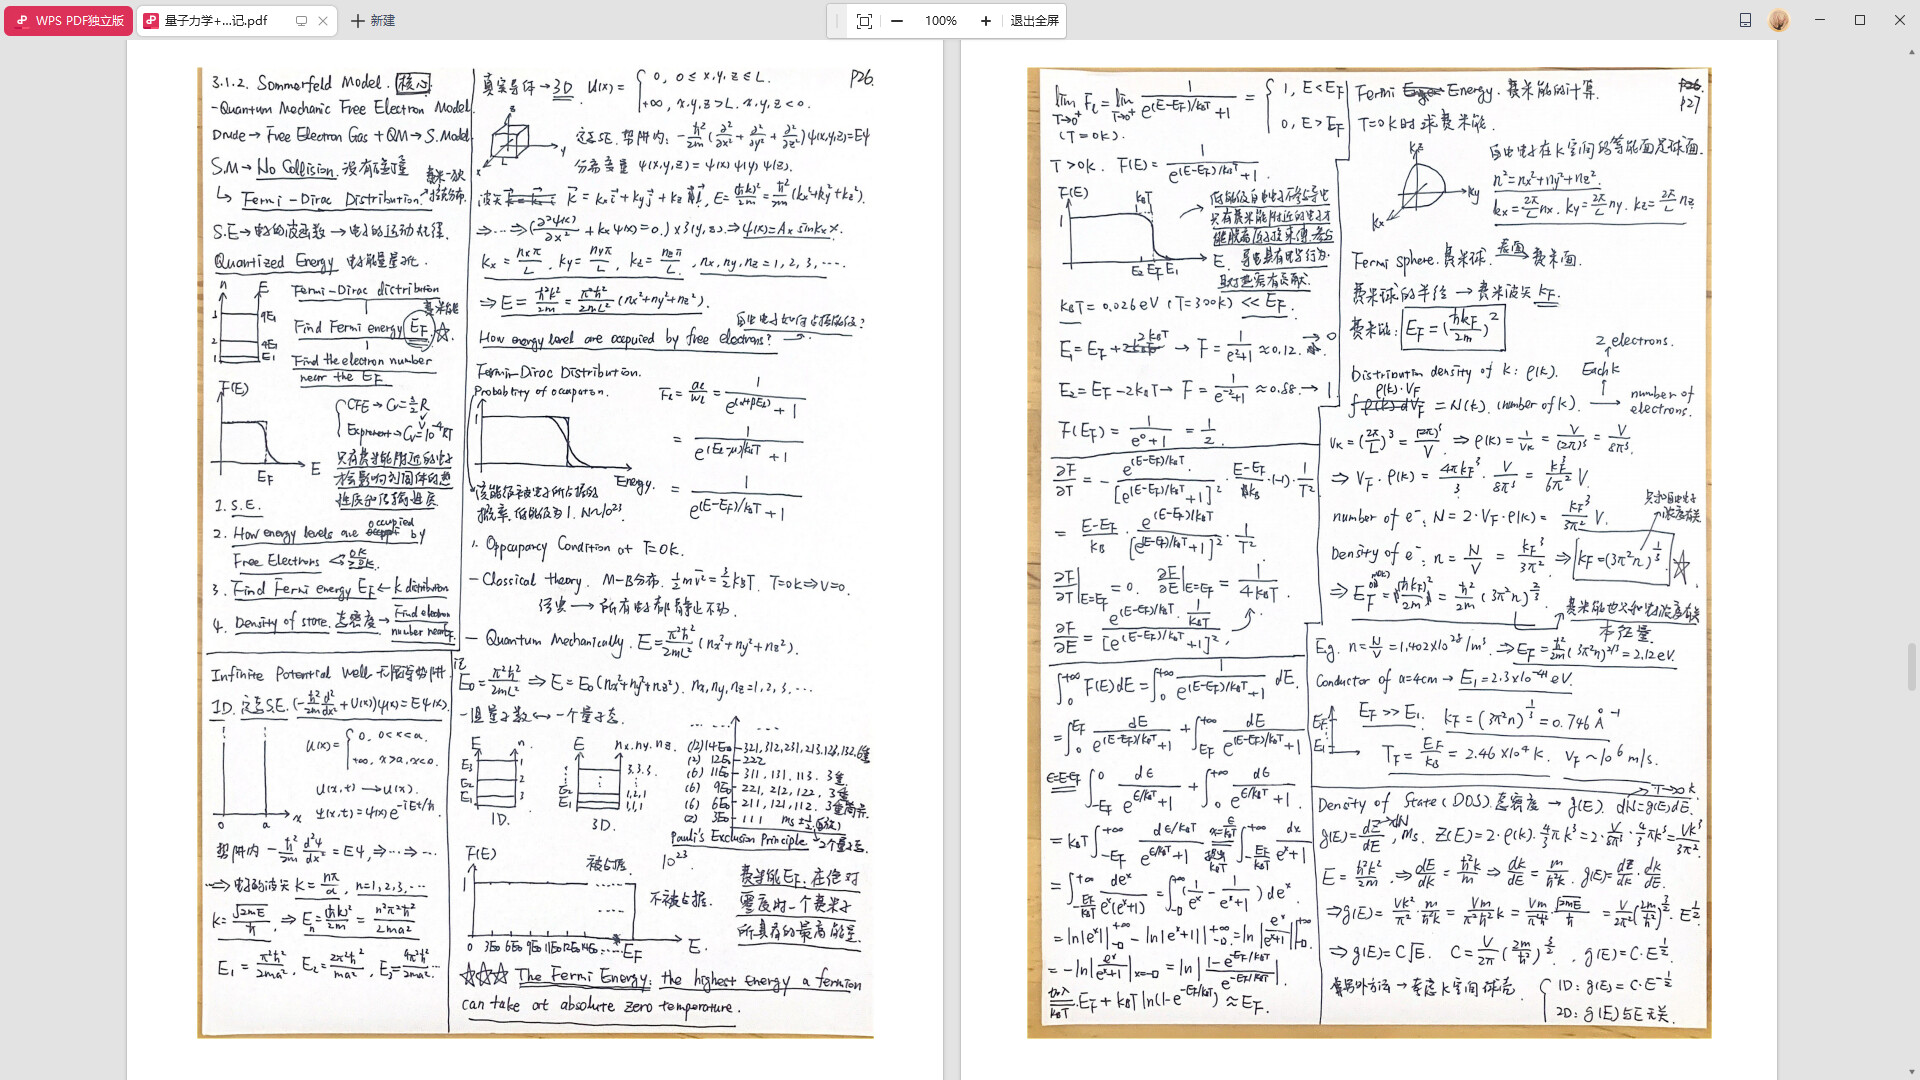 WPS PDF独立版
量子力学+...记.pdf
新建
100%
退出全屏
3.1.2. Sommerfeld Model. 核心
- Quantum Mechanic Free Electron Model
Drude → Free Electron Gas + QM → S.Model
S.M → No Collision. 没有碰撞
↳ Fermi-Dirac Distribution.
S.E → 电子的波函数 → 电子的运动规律.
Quantized Energy 电子能量量子化.
n E
Fermi-Dirac distribution
费米能
Find Fermi energy EF ☆
Find the electron number
near the EF
3 9E1
2 4E1
1 E1
F(E)
CFE → Cv = 3/2 R
Experiment → Cv = 10⁻⁴RT
只有费米能附近的电子
才会影响到固体的热
性质和传输性质
EF E
1. S.E.
2. How energy levels are occupied by
Free Electrons < 0K >0K
3. Find Fermi energy EF ← k distribution
4. Density of state. 态密度 → Find electron number near EF
Infinite Potential Well 无限深势阱
1D. 定态S.E. (-ħ²/2m d²/dx² + U(x))ψ(x) = Eψ(x).
U(x) = { 0, 0<x<a.
+∞, x>a, x<0.
U(x,t) → U(x).
ψ(x,t) = ψ(x)e^(-iEt/ħ)
0 a x
势阱内 -ħ²/2m d²ψ/dx² = Eψ, ⇒ ... ⇒ ...
⇒ 电子的波矢 k = nπ/a, n=1,2,3,...
k = √(2mE)/ħ, ⇒ En = (ħk)²/2m = n²π²ħ²/2ma²
E1 = π²ħ²/2ma², E2 = 2π²ħ²/ma², E3 = 9π²ħ²/2ma² ...
P26
真实导体 → 3D U(x) = { 0, 0 ≤ x,y,z ≤ L.
+∞, x,y,z > L. x,y,z < 0.
定态S.E. 势阱内: -ħ²/2m (∂²/∂x² + ∂²/∂y² + ∂²/∂z²)ψ(x,y,z) = Eψ
分离变量 ψ(x,y,z) = ψ(x)ψ(y)ψ(z).
⇒ ... ⇒ (∂²ψ(x)/∂x² + kxψ(x) = 0.) × 3(y,z). ⇒ ψ(x) = Ax sin kx x.
kx = nxπ/L, ky = nyπ/L, kz = nzπ/L, nx, ny, nz = 1, 2, 3, ....
⇒ E = ħ²k²/2m = π²ħ²/2mL² (nx²+ny²+nz²).
自由电子如何占据能级?
How energy level are occupied by free electrons?
Fermi-Dirac Distribution.
Probability of occupation.
= 1/(e^((El-μ)/kBT) + 1)
= 1/(e^((E-EF)/kBT) + 1)
Energy.
该能级被电子所占据的
概率. 低能级为1. N~10²³
1. Oppcupancy Condition at T=0K.
- Classical theory. M-B分布. ½mv̄² = 3/2 kBT. T=0K ⇒ v=0.
→ 所有电子都静止不动.
- Quantum Mechanically. E = π²ħ²/2mL² (nx²+ny²+nz²).
记 E0 = π²ħ²/2mL² ⇒ E = E0(nx²+ny²+nz²). nx,ny,nz=1,2,3,...
一组量子数 ↔ 一个量子态.
E n. E nx.ny.nz.
E3 E2 E1
1D.
3,3,3. 1,2,1 1,1,1
3D.
(12) 14E0 321, 312, 231, 213, 123, 132. 6重
(2) 12E0 222
(6) 11E0 311, 131, 113. 3重
(6) 9E0 221, 212, 122. 3重
(6) 6E0 211, 121, 112. 3重简并
(2) 3E0 111 ms ± ½ (自旋)
Pauli's Exclusion Principle → 2个量子态.
F(E)
被占据. 10²³
不被占据.
0 3E0 6E0 9E0 11E0 12E0 14E0 ... EF E.
费米能EF. 在绝对
零度时一个费米子
所具有的最高能量.
☆☆☆ The Fermi Energy: the highest energy a fermion
can take at absolute zero temperature.
lim T→0⁺ Fl = lim T→0⁺ 1/(e^((E-EF)/kBT)+1) = { 1, E<EF
0, E>EF
(T=0K).
T>0K. F(E) = 1/(e^((E-EF)/kBT)+1).
F(E) kBT
1
E2 EF E1 E.
低能级自由电子不参与导电
只有费米能附近的电子才
能脱离原子核束缚. 参与
导电具有电学行为.
且对热容有贡献.
kBT = 0.026eV (T=300K) << EF.
E1 = EF + 2kBT → F = 1/(e²+1) ≈ 0.12. → 0
E2 = EF - 2kBT → F = 1/(e⁻²+1) ≈ 0.88. → 1
F(EF) = 1/(e⁰+1) = 1/2.
∂F/∂T = - e^((E-EF)/kBT)/[e^((E-EF)/kBT)+1]² · (E-EF)/kB · (-1) · 1/T²
= (E-EF)/kB · e^((E-EF)/kBT)/[e^((E-EF)/kBT)+1]² · 1/T².
∂F/∂T|E=EF = 0. ∂F/∂E|E=EF = 1/4kBT.
∂F/∂E = e^((E-EF)/kBT) · 1/kBT / [e^((E-EF)/kBT)+1]²,
∫0^+∞ F(E)dE = ∫0^+∞ 1/(e^((E-EF)/kBT)+1) dE.
= ∫0^EF dE/(e^((E-EF)/kBT)+1) + ∫EF^+∞ dE/(e^((E-EF)/kBT)+1)
ε=E-EF ∫-EF^0 dε/(e^(ε/kBT)+1) + ∫0^+∞ dε/(e^(ε/kBT)+1).
= kBT ∫-EF^+∞ (dε/kBT)/(e^(ε/kBT)+1) x=ε/kBT ∫-EF/kBT^+∞ dx/(e^x+1)
= ∫-EF/kBT^+∞ de^x/(e^x(e^x+1)) = ∫-0^+∞ (1/e^x - 1/(e^x+1)) de^x
= ln|e^x||-0^+∞ - ln|e^x+1||-0^+∞ = ln|e^x/(e^x+1)||-0^+∞
= -ln|e^x/(e^x+1)|x=-0 = ln|(1-e^(-EF/kBT))/e^(-EF/kBT)|.
EF + kBT ln(1-e^(-EF/kBT)) ≈ EF.
Fermi Energy. 费米能的计算.
P27
T=0K时求费米能.
自由电子在k空间的等能面是球面.
kz ky kx
n² = nx²+ny²+nz².
kx = 2π/L nx, ky = 2π/L ny, kz = 2π/L nz.
Fermi sphere. 费米球. 表面 → 费米面.
费米球的半径 → 费米波矢 kF.
费米能: EF = (ħkF/2m)²
2 electrons.
Distribution density of k: ρ(k). Each k
ρ(k)·VF = N(k). (number of k). → number of electrons.
Vk = (2π/L)³ = (2π)³/V ⇒ ρ(k) = 1/Vk = V/(2π)³ = V/8π³.
⇒ VF · ρ(k) = 4πkF³/3 · V/8π³ = kF³/6π² V.
number of e⁻: N = 2·VF·ρ(k) = kF³/3π² V.
只和自由电子浓度有关
Density of e⁻: n = N/V = kF³/3π² ⇒ kF = (3π²n)^⅓ ☆
⇒ EF = (ħkF)²/2m = ħ²/2m (3π²n)^⅔.
费米能也只和电子浓度有关
本征量.
Eg. n = N/V = 1.402×10²⁸/m³. ⇒ EF = ħ²/2m (3π²n)^2/3 = 2.12eV.
Conductor of a=4cm → E1 = 2.3×10⁻⁴¹eV.
EF >> E1. kF = (3π²n)^⅓ = 0.746 Å⁻¹
TF = EF/kB = 2.46×10⁴K. vF ~ 10⁶ m/s.
Density of State (DOS). 态密度 → g(E). dN = g(E)dE. T→0K
g(E) = dZ/dE, ms. Z(E) = 2·ρ(k)·4/3πk³ = 2·V/8π³·4/3πk³ = Vk³/3π².
E = ħ²k²/2m. ⇒ dE/dk = ħ²k/m ⇒ dk/dE = m/ħ²k. g(E) = dZ/dk · dk/dE.
⇒ g(E) = Vk²/π² · m/ħ²k = Vm/π²ħ² k = Vm/π²ħ² · √(2mE)/ħ = V/2π² (2m/ħ²)^(3/2) · E^½
⇒ g(E) = C√E. C = V/2π (2m/ħ²)^(3/2), g(E) = C·E^½.
另外方法 → 考虑k空间球壳. { 1D: g(E) = C·E^(-½)
2D: g(E)与E无关.